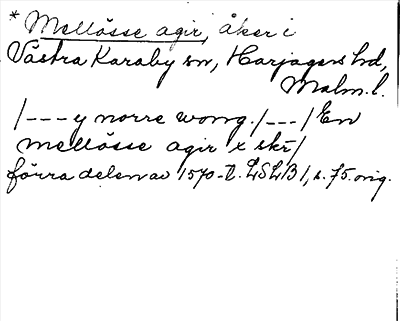 * Mellösse agir, åker i
Västra Karaby sn, Harjagers hd,
Malm. l.
/--- y norre wong. /---/ En
mellösse agir x skr/
förra delen av 1570-t. LSLB 1, s. 75. orig.